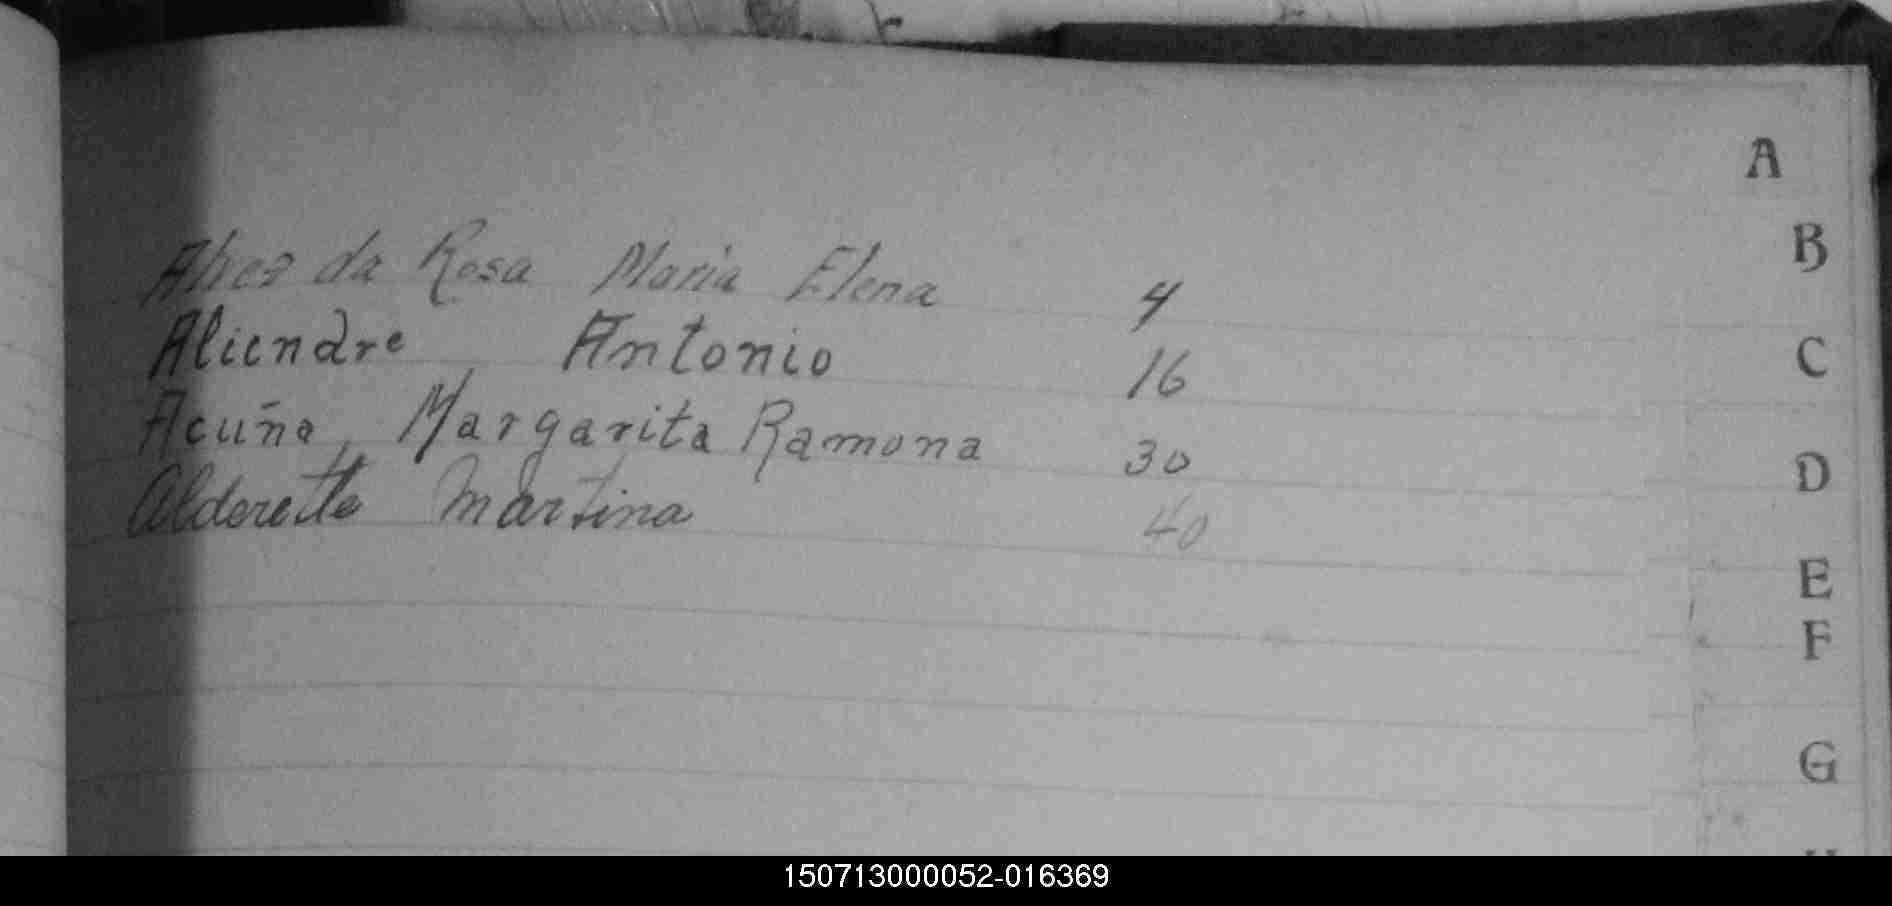 A
Alvez da Rosa Maria Elena 4
B
Aliendre Antonio 16
C
Acuña, Margarita Ramona 30
D
Alderette Martina 40
E
F
G
150713000052-016369